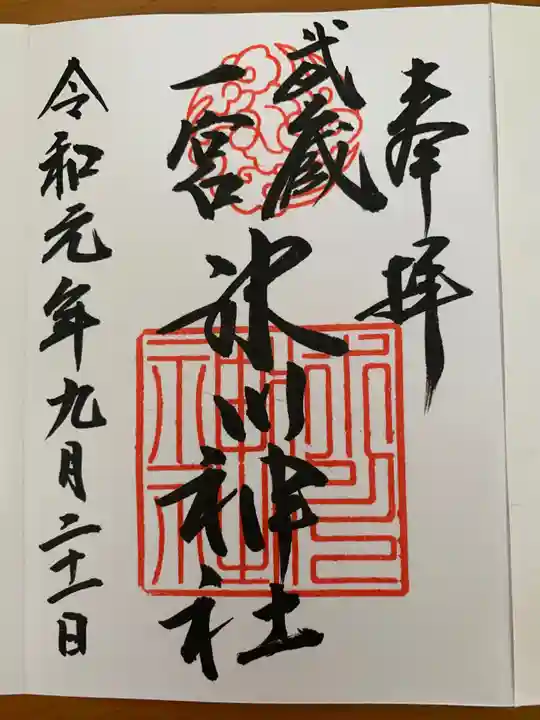 奉拝
武蔵
一宮
氷川神社
令和元年九月二十一日
氷川
神社